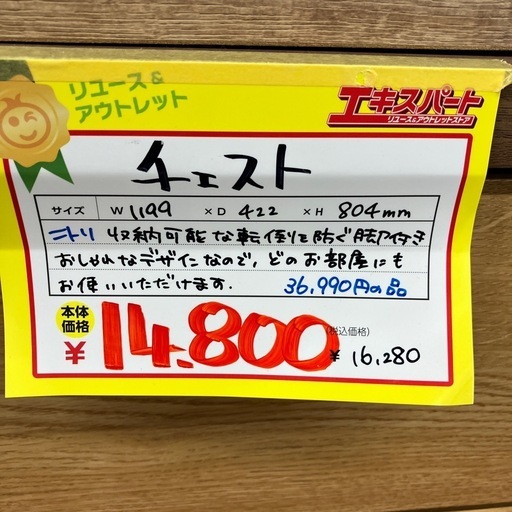 リユース&
アウトレット
エキスパート
リユース&アウトレットストア
チェスト
サイズ W 1199 × D 422 × H 804mm
ニトリ 収納可能な転倒を防ぐ脚付き
おしゃれなデザインなので、どのお部屋にも
お使いいただけます. 36,990円の品
本体
価格
¥14.800
(税込価格)
¥16,280